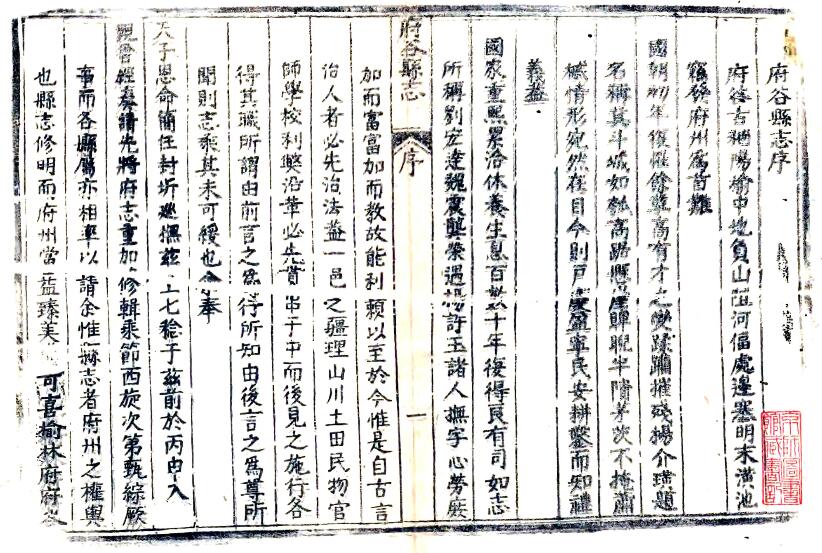 府谷縣志序
府谷古稠陽榆中地負山阻河偪處邊塞明末潢池
竊發府州屬首難
國朝初年復罹餘孽高有才之變蹂躪摧殘楊介璜題
名稱其斗城如瓠高踞懸崖睥睨半隤茅茨不掩蕭
槭情形宛然在目今則戶慶盈寧民安耕鑿而知禮
義益
國家重熙累洽休養生息百數十年復得良有司如志
所稱劉宏逵魏震龔榮遇楊許玉諸人撫字心勞庶
府谷縣志
序
一
加而富富加而教故能利賴以至於今惟是自古言
治人者必先治法蓋一邑之疆理山川土田民物官
師學校利獘沿革必先貫串于中而後見之施行各
得其職所謂由前言之為得所知由後言之為尊所
聞則志乘其未可緩也余奉
天子恩命簡任封圻巡撫茲土七稔于茲前於丙申入
覲曾經奏請先將府志重加修輯乘節西旋次第甄綜厥
事而各縣屬亦相率以請余惟縣志者府州之權輿
也縣志修明而府州當益臻美
可喜榆林府府谷
京師圖書館藏書記